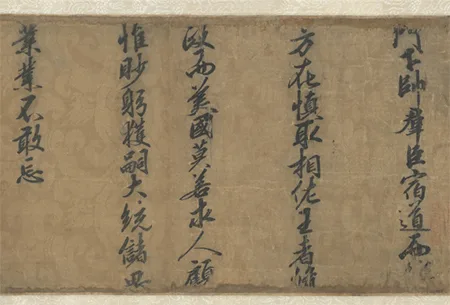 門下帥羣臣宿道而
方在慎取相佐王者脩
政而美國莫若求人顧
惟眇躬獲嗣大統儲
業業不敢忘